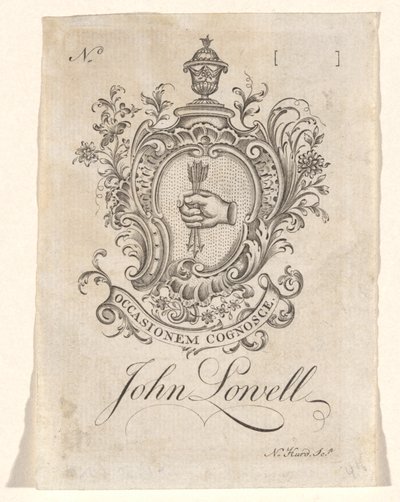 Nº [ ]
OCCASIONEM COGNOSCE.
John Lowell
N. Hurd, Scp